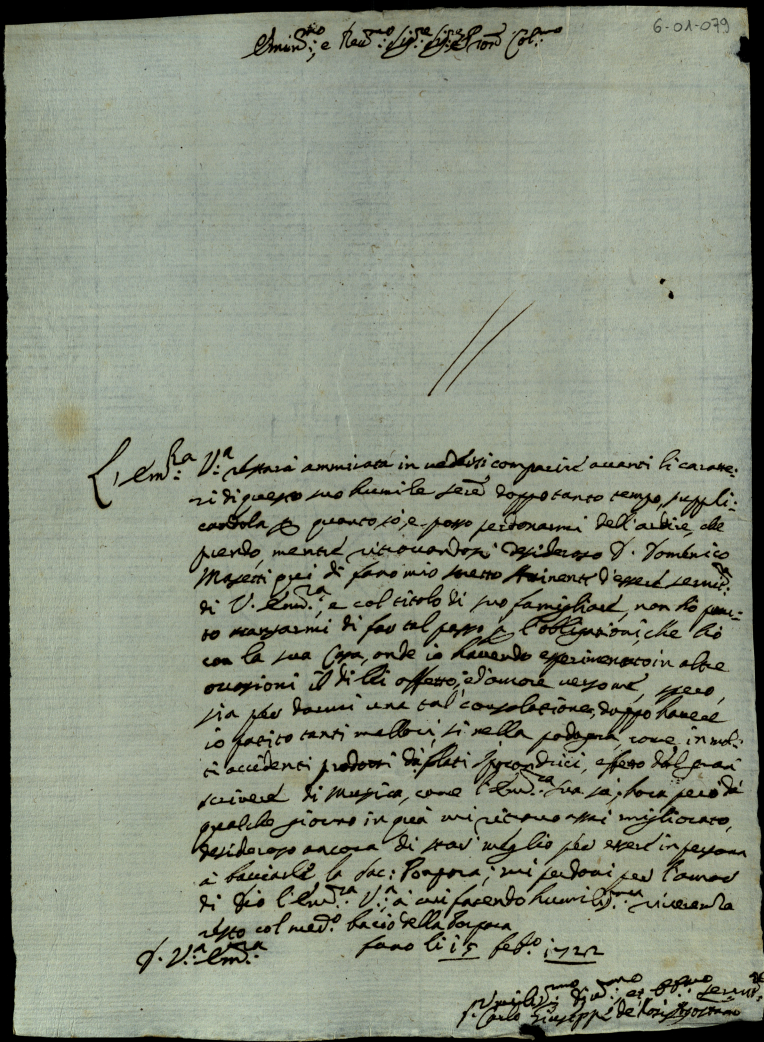 6-01-079
Emin.mo, e Rev.mo Sig.re Sig.re Pron Col.mo
L'Em.za V.a restarà ammirata in vedersi comparire avanti li caratte:
ri di questo suo humile ser.e doppo tanto tempo, suppli:
candola quanto sò, e posso perdonarmi dell'ardire, che
prendo, mentre ritrovandosi desideroso D. Domenico
Masetti qui di fano mio stretto Attinente d'essere
di V. Em.za, e col titolo di suo famigliare, non hò
to di far tal passo l'obligazioni, che hò
con la sua Casa, onde io havendo esperimentato in altre
occasioni il di lei affetto, ed amore verso me, spero,
sia per darmi una tal consolatione, doppo havere
io patito tanti mallori, sì nella podagra, come in mol:
ti accidenti prodotti da flati Ipocondrici, effetto dal gran
scrivere di Musica, come l'Em.za sua sà; hora però da
qualche giorno in quà mi ritrovo assai migliorato,
desideroso ancora di star meglio per essere in persona
à bacciarle la Sac: Porpora; mi perdoni per l'amor
di Dio l'Em.za V.a à cui facendo humiliss.ma riverenza
resto col med.o bacio della Porpora
D. V.a Em.za fano li 15 feb.o 1722
Umiliss.mo Div.mo et Obb.mo
Carlo Giuseppe de Rosi